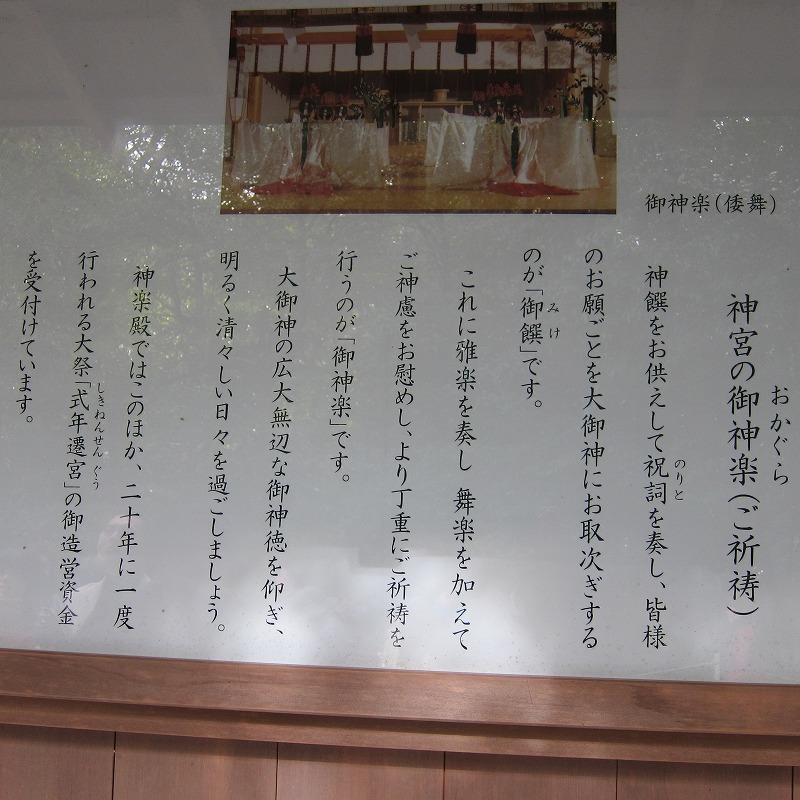 御神楽（倭舞）
神宮の御神楽（ご祈祷）
おかぐら
神饌をお供えして祝詞を奏し、皆様
のりと
のお願ごとを大御神にお取次ぎする
のが「御饌」です。
みけ
これに雅楽を奏し 舞楽を加えて
ご神慮をお慰めし、より丁重にご祈祷を
行うのが「御神楽」です。
大御神の広大無辺な御神徳を仰ぎ、
明るく清々しい日々を過ごしましょう。
神楽殿ではこのほか、二十年に一度
行われる大祭「式年遷宮」の御造営資金
しきねんせんぐう
を受付けています。